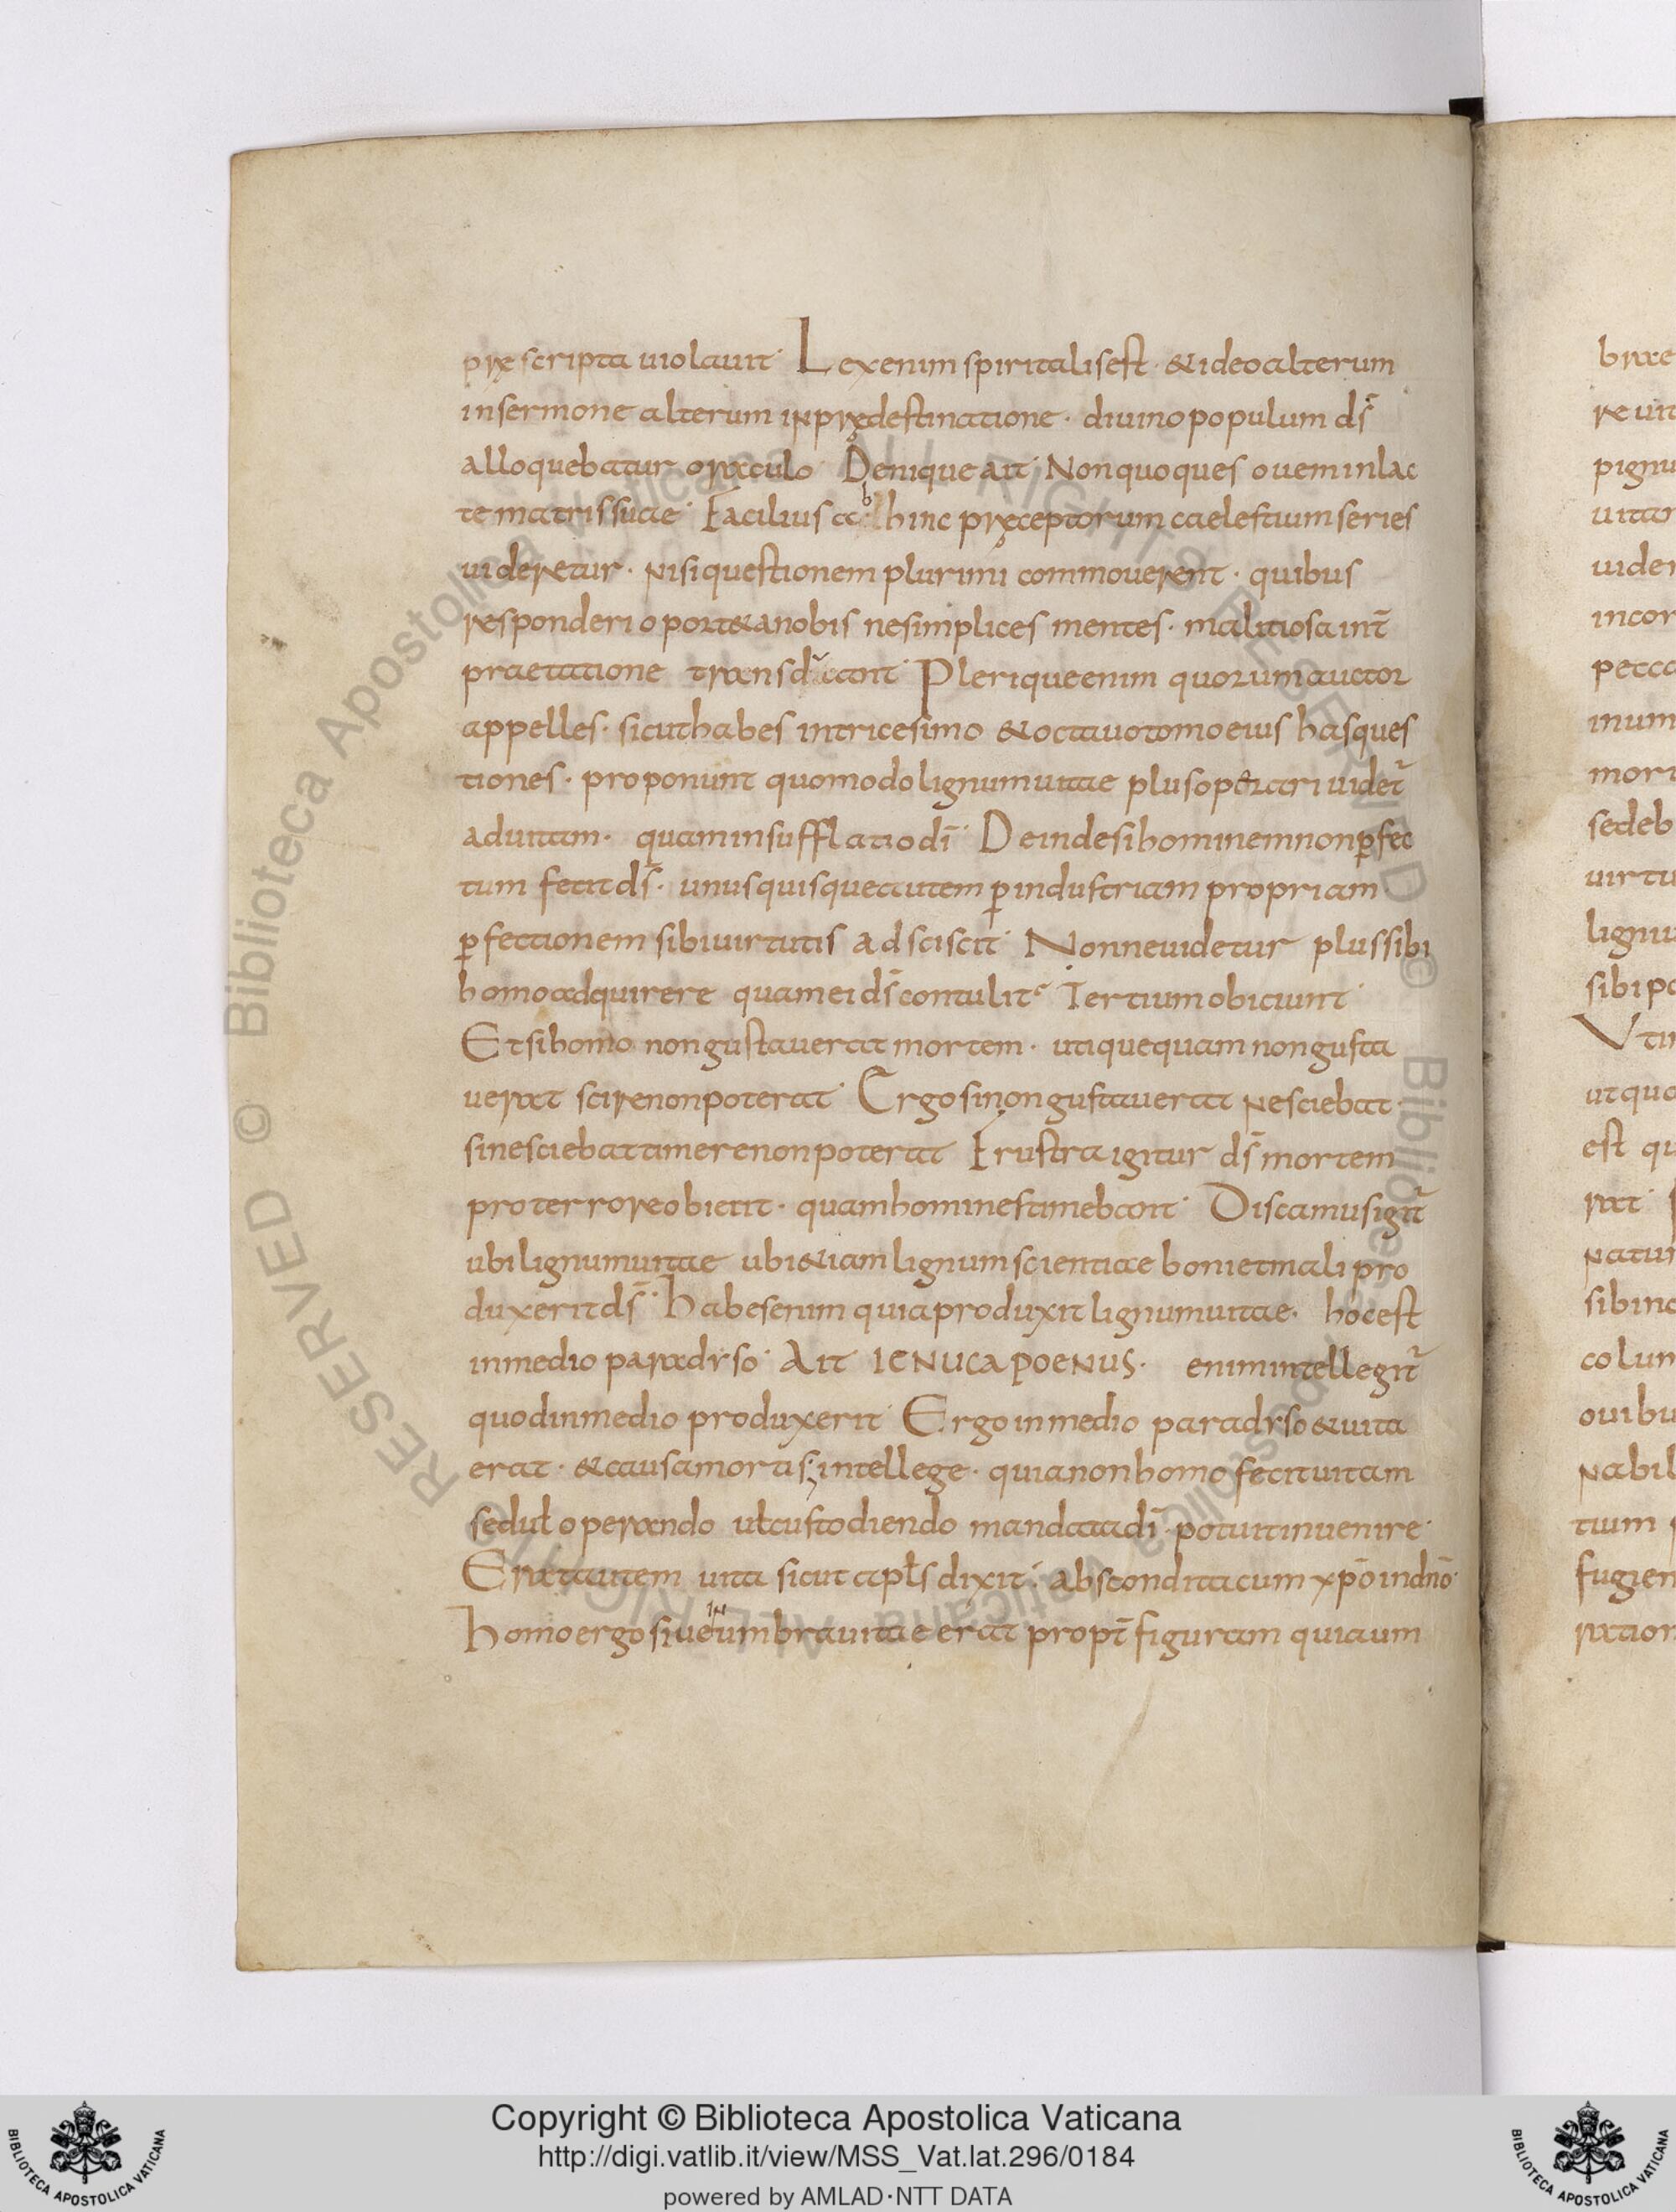 pręscripta uiolauit· Lexenim spiritalisest· &ideoalterum
insermone alterum inprędestinatione· diuinopopulum ds̄
alloquebatur oraculo Denique ait· Nonquoques ouem inlac
te matrissuae· Facilius ab hinc pręceptorum caelestiumseries
uideretur· nisiquestionem plurimi commouerent· quibus
responderi oport&anobis nesimplices mentes· malitiosaint̄
praetatione transducant· Pleriqueenim quorumauctor
appelles· sicuthabes intricesimo &octauotomoeius hasques
tiones· proponunt quomodolignumuitae plusoperari uidet̄
aduitam· quaminsufflatiodī· Deindesihominemnonꝑfec
tum fecitds̄· unusquisqueautem ꝑindustriam propriam·
ꝑfectionem sibiuirtutis adsciscit· Nonneuidetur plussibi
homoadquirere quameids̄contulit· Tertiumobiciunt·
Etsihomo nongustauerat mortem· utiquequam nongusta
uerat scirenonpoterat· Ergosinongustauerat nesciebat·
sinesciebattimerenonpoterat Frustraigitur ds̄mortem
proterroreobiecit· quamhominestimebant· Discamusigit̄
ubilignumuitae ubi&iamlignumscientiae bonietmalipro
duxeritds̄· habesenim quiaproduxitlignumuitae· hocest
inmedio paradyso· Ait IENUCAPOENUS· enimintellegit̄
quodinmedio produxerit· Ergoinmedio paradyso&uita
erat· &causamortis; intellege· quianonhomo fecituitam
sedul̄operando ul̄custodiendo mandatadī· potuitinuenire·
Eratautem uita sicut apl̄s dixit· absconditacum xp̄oindn̄o·
homoergosiue in umbrauitae erat propt̄ figuram quiaum
braxe
reuit
pignu
uitar
uider
incor
pecca
inum
mort
sedeb
uirtu
lignu
sibipo
Vtin
utquo
est qu
rat·
natur
sibino
colum
ouibu
nabil
tium
fugien
ration
Copyright © Biblioteca Apostolica Vaticana
http://digi.vatlib.it/view/MSS_Vat.lat.296/0184
powered by AMLAD·NTT DATA
BIBLIOTECA APOSTOLICA VATICANA
BIBLIOTECA APOSTOLICA VATICANA